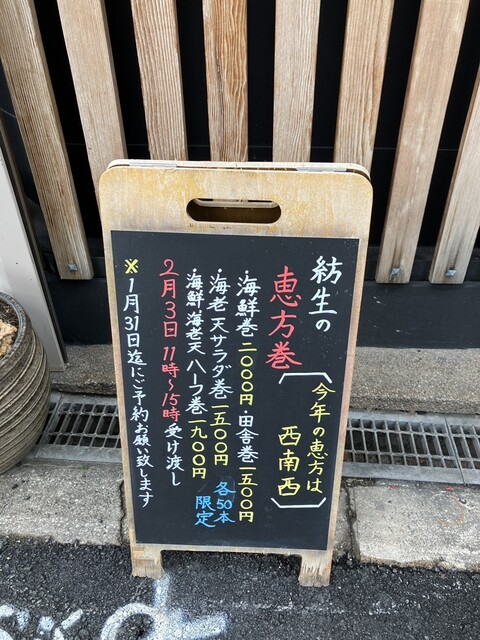 紡生の
恵方巻
今年の恵方は
西南西
・海鮮巻二〇〇〇円・田舎巻一五〇〇円
・海老天サラダ巻一五〇〇円
・海鮮海老天ハーフ巻一九〇〇円
各50本
限定
2月3日11時～15時受け渡し
※1月31日迄にご予約お願い致します